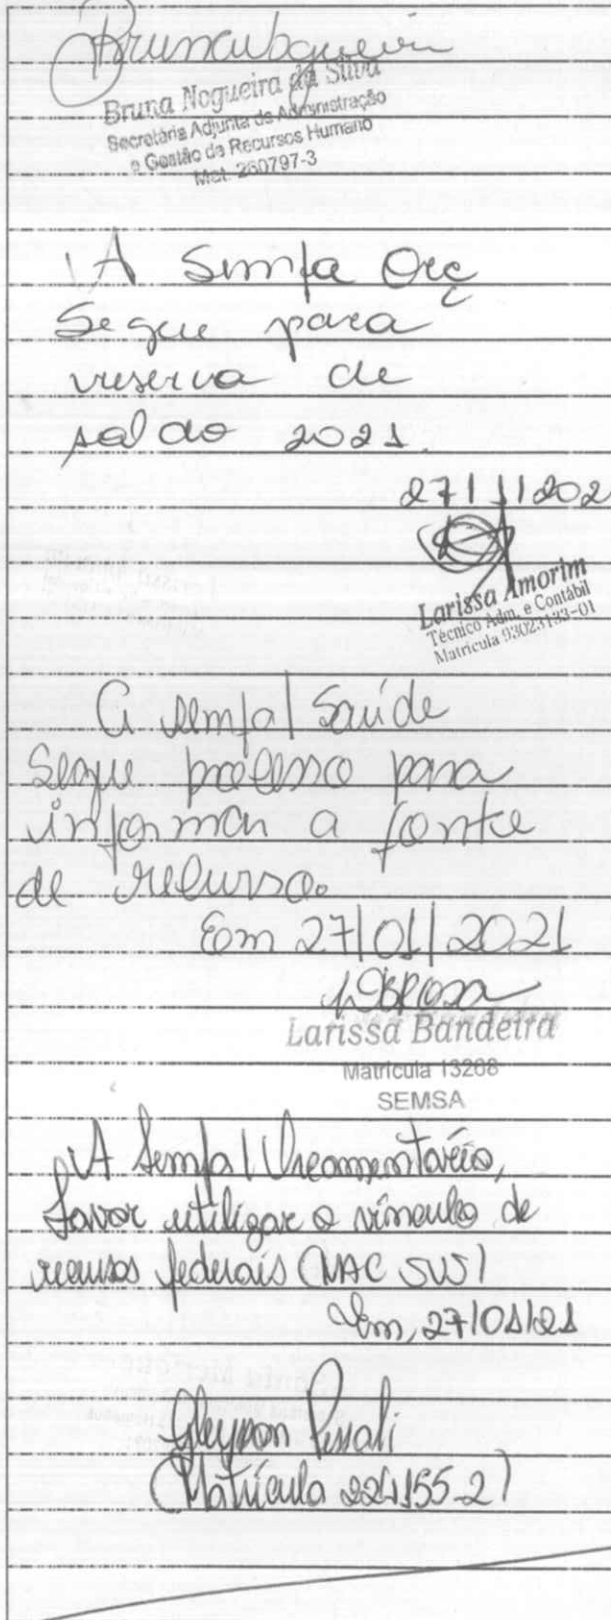 Bruna Nogueira
Bruna Nogueira da Silva
Secretária Adjunta de Administração
e Gestão de Recursos Humano
Mat. 260797-3
A Semfa Orç
Segue para
reserva de
saldo 2021.
27/1/202
Larissa Amorim
Técnico Adm. e Contábil
Matrícula 93023133-01
A semfa/ Saúde
Segue processo para
informar a fonte
de recurso.
Em 27/01/2021
Larissa Bandeira
Matrícula 13268
SEMSA
A Semfa/ Orcamentário,
favor utilizar o vínculo de
recursos federais (MAC SUS)
Em, 27/01/21
Gleyson
(Matrícula 224155-2)